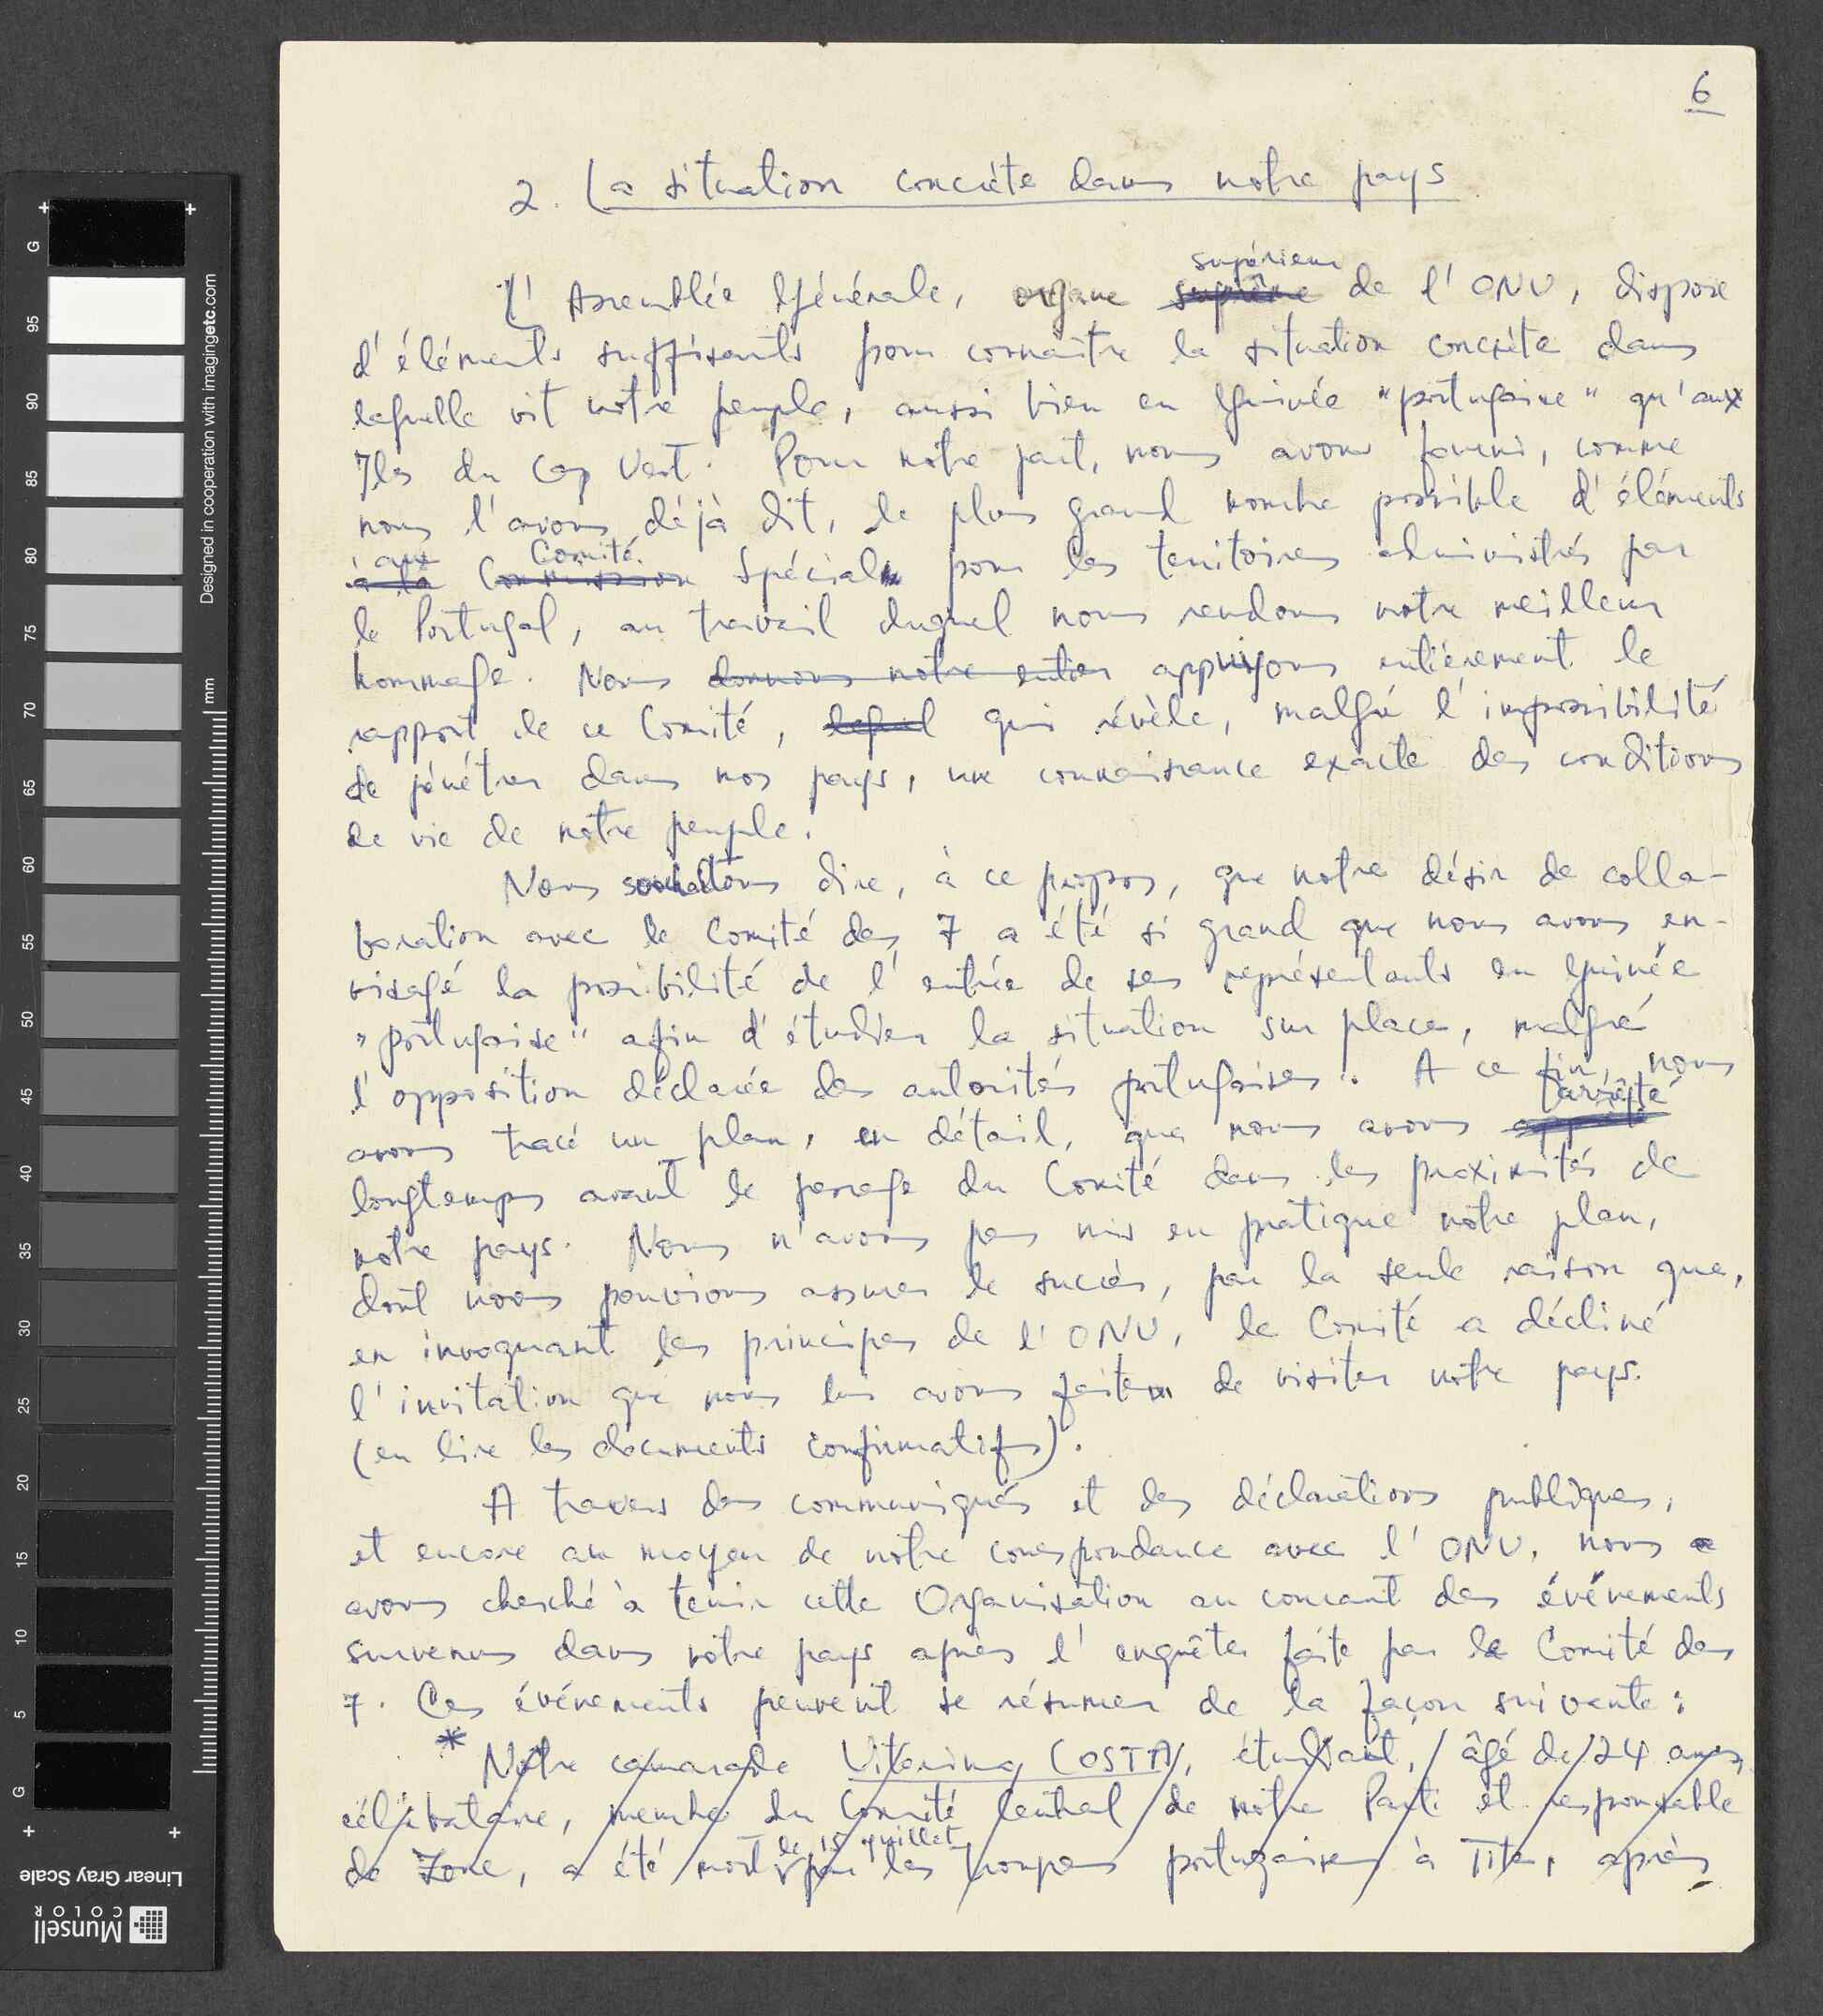 6
2. La situation concrète dans notre pays
supérieur
L'Assemblée Générale, organe suprême de l'ONU, dispose
d'éléments suffisants pour connaître la situation concrète dans
laquelle vit notre peuple, aussi bien en Guinée "portugaise" qu'aux
Iles du Cap Vert. Pour notre part, nous avons fourni, comme
nous l'avons déjà dit, le plus grand nombre possible d'éléments
au Comité
à la Commission Spécial pour les territoires administrés par
le Portugal, au travail duquel nous rendons notre meilleur
hommage. Nous donnons notre entier appuyons entièrement le
rapport de ce Comité, lequel qui révèle, malgré l'impossibilité
de pénétrer dans nos pays, une connaissance exacte des conditions
de vie de notre peuple.
Nous souhaitons dire, à ce propos, que notre désir de colla-
boration avec le Comité des 7 a été si grand que nous avons en-
visagé la possibilité de l'entrée de ses représentants en Guinée
"portugaise" afin d'étudier la situation sur place, malgré
l'opposition déclarée des autorités portugaises. A ce fin, nous
arrêté
avons tracé un plan, en détail, que nous avons
longtemps avant le passage du Comité dans les proximités de
notre pays. Nous n'avons pas mis en pratique notre plan,
dont nous pouvions assurer le succès, par la seule raison que,
en invoquant les principes de l'ONU, le Comité a décliné
l'invitation que nous lui avons faite de visiter notre pays.
(en lire les documents confirmatifs).
A travers des communiqués et des déclarations publiques,
et encore au moyen de notre correspondance avec l'ONU, nous
avons cherché à tenir cette Organisation au courant des événements
survenus dans notre pays après l'enquête faite par le Comité des
7. Ces événements peuvent se résumer de la façon suivante :
* Notre camarade Vitorino COSTA, étudiant, âgé de 24 ans,
célibataire, membre du Comité Central de notre Parti et responsable
le 15 juillet
de Zone, a été mort par les troupes portugaises à Tite, après
G
95
90
85
80
75
70
65
60
55
50
45
40
35
30
25
20
15
10
5
G
mm
Designed in cooperation with imagingetc.com
Linear Gray Scale
Munsell
COLOR